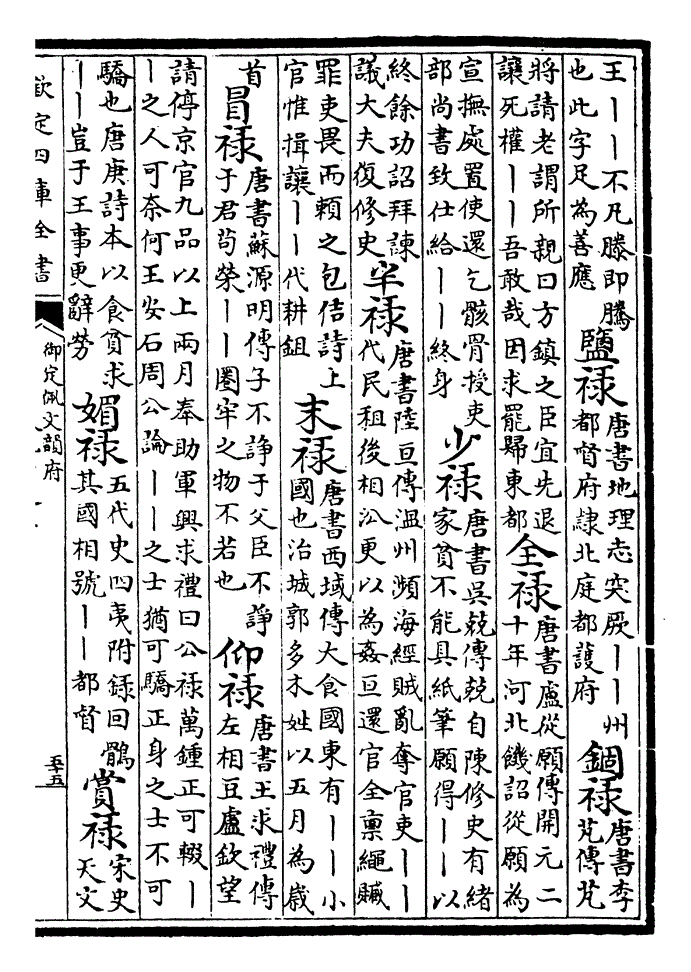 王丨丨不凡滕即騰也此字足為善應 鹽祿 唐書地理志突厥丨丨州都督府隸北庭都護府 錮祿 唐書李芃傳芃
將請老謂所親曰方鎮之臣宜先退讓死權丨丨吾敢哉因求罷歸東都 全祿 唐書盧從願傳開元二十年河北饑詔從願為
宣撫處置使還乞骸骨授吏部尚書致仕給丨丨終身 少祿 唐書吳兢傳兢自陳修史有緒家貧不能具紙筆願得丨丨以
終餘功詔拜諫議大夫復修史 牢祿 唐書陸亘傳温州瀕海經賊亂奪官吏丨丨代民租後相沿更以為姦亘還官全禀繩贓
罪吏畏而賴之包佶詩上官惟揖讓丨丨代耕鉏 末祿 唐書西域傳大食國東有丨丨小國也治城郭多木姓以五月為嵗
首 冒祿 唐書蘇源明傳子不諍于父臣不諍于君苟榮丨丨圈牢之物不若也 仰祿 唐書王求禮傳左相豆盧欽望
請停京官九品以上兩月奉助軍興求禮曰公祿萬鍾正可輟丨丨之人可奈何王安石周公論丨丨之士猶可驕正身之士不可
驕也唐庚詩本以食貧求丨丨豈于王事更辭勞 媚祿 五代史四夷附録回鶻其國相號丨丨都督 賞祿 宋史天文
欽定四庫全書
御定佩文韻府
五十五